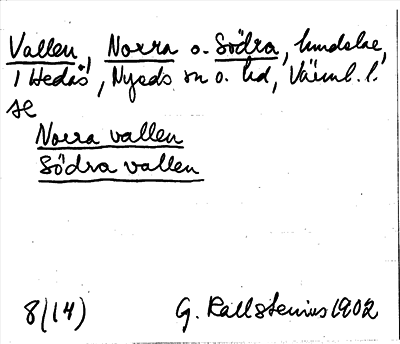 Vallen, Norra o. Södra, hundelae,
i Hedås, Nyeds sn o. hd, Värml. l.
se
Norra vallen
Södra vallen
8(14) G. Kallstenius 1902